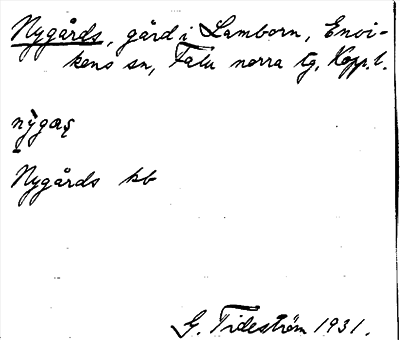 Nygårds, gård i Lamborn, Envi-
kens sn, Falu norra tg, Kopp. l.
nỳgaş
Nygårds kb
G. Tideström 1931.